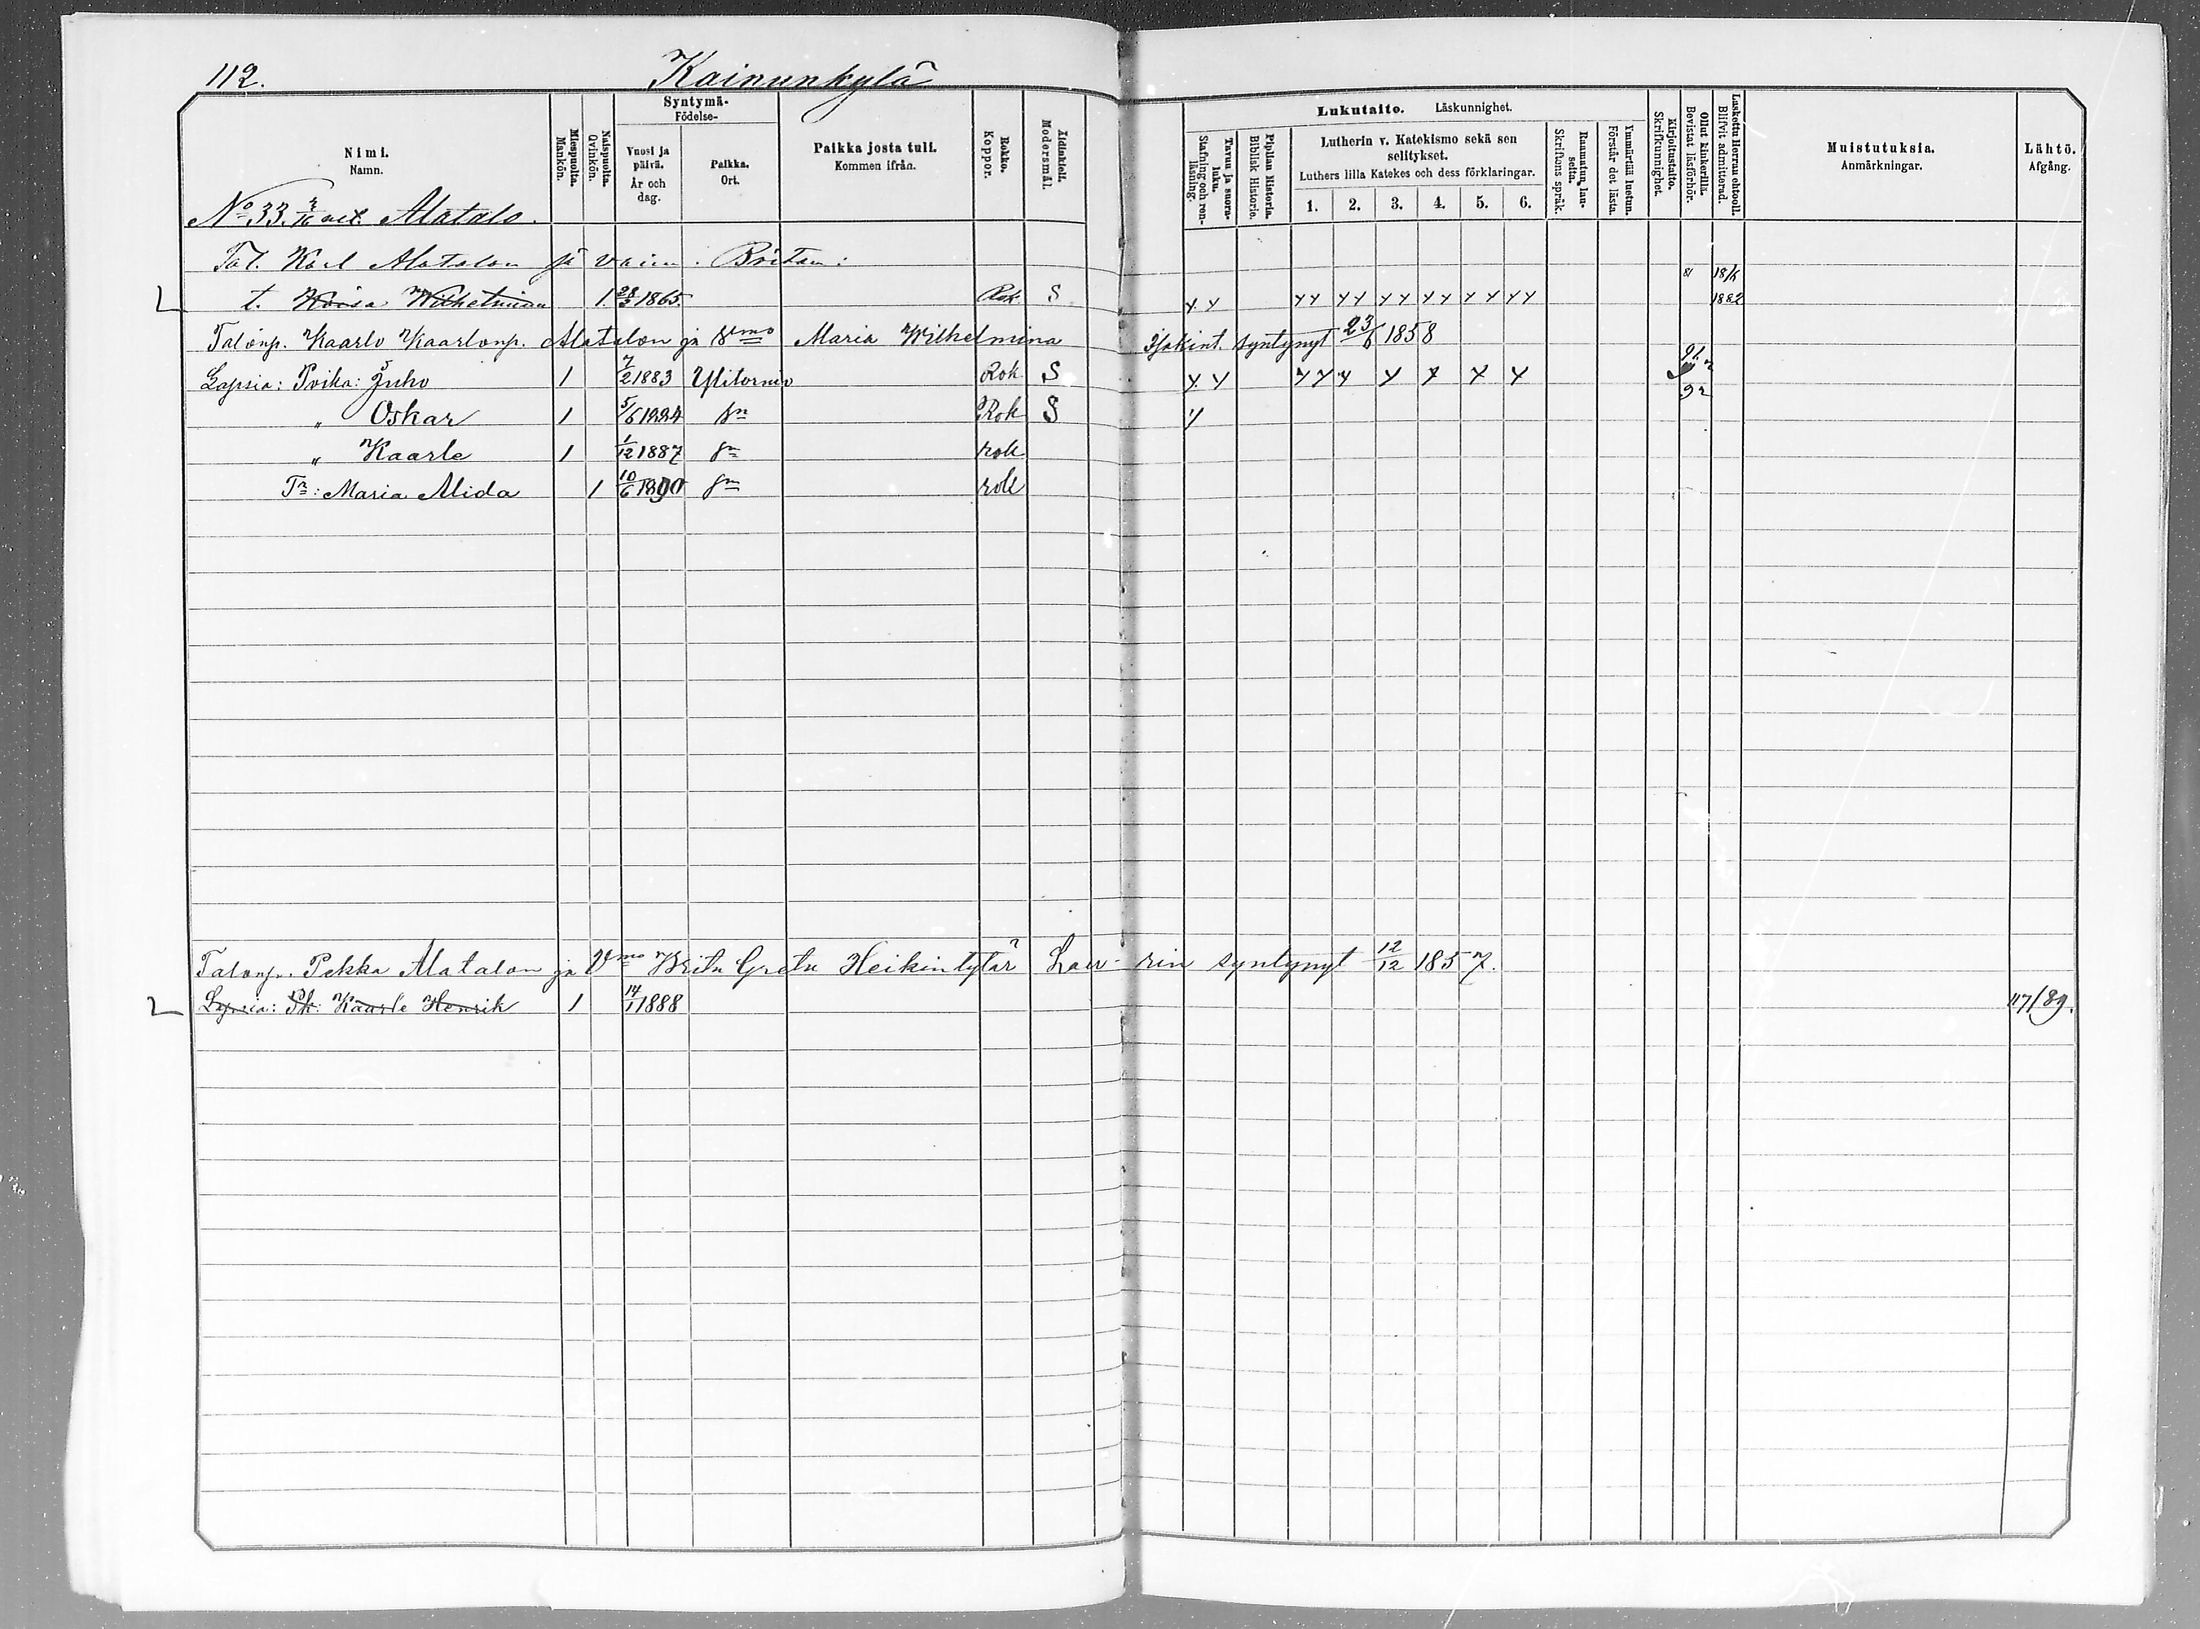 112. Kainunkylä
Syntymä-
Födelse-
Nimi.
Namn.
Miespuolta.
Mankön.
Naispuolta.
Qvinkön.
Vuosi ja päivä.
År och dag.
Paikka.
Ort.
Paikka josta tuli.
Kommen ifrån.
Rokko.
Koppor.
Äidinkieli.
Modersmål.
Lukutaito. Läskunnighet.
Tavuu ja suora-luku.
Stafning och ren-läsning.
Piplian Historia.
Biblisk Historie.
Lutherin v. Katekismo sekä sen selitykset.
Luthers lilla Katekes och dess förklaringar.
1. 2. 3. 4. 5. 6.
Raamatun lau-seita.
Skriftens språk.
Ymmärtää luetun.
Förstår det lästa.
Kirjoitustaito.
Skrifkunnighet.
Ollut kinkerillä.
Bevistat läsförhör.
Laskettu Herran ehtooll.
Blifvit admitterad.
Muistutuksia.
Anmärkningar.
Lähtö.
Afgång.
No 33. Alatalo.
Tal. Karl Alatalon ja vaim. Britan:
81 18/
t. Wilhelmina 1. 28/3 1865 Rok S y y y y y y y y y y y y y y 1882
Talonp. Kaarlo Kaarlonp. Alatalon ja Vmo Maria Wilhelmina Isakint. syntynyt 23/6 1858
Lapsia: Poika: Juho 1 7/2 1883 Ylitornio Rok S y y y y y y y y y 91 92
" Oskar 1 5/6 1884 sn Rok S y
" Kaarle 1 1/12 1887 sn rok
Tr: Maria Alida 1 10/6 1890 sn rok
Talonp. Pekka Alatalon ja Vmo Brita Greta Heikintytär Laurin syntynyt 12/12 1857.
Lapsia: Pk: Kaarle Henrik 1 14/1 1888 117/89.